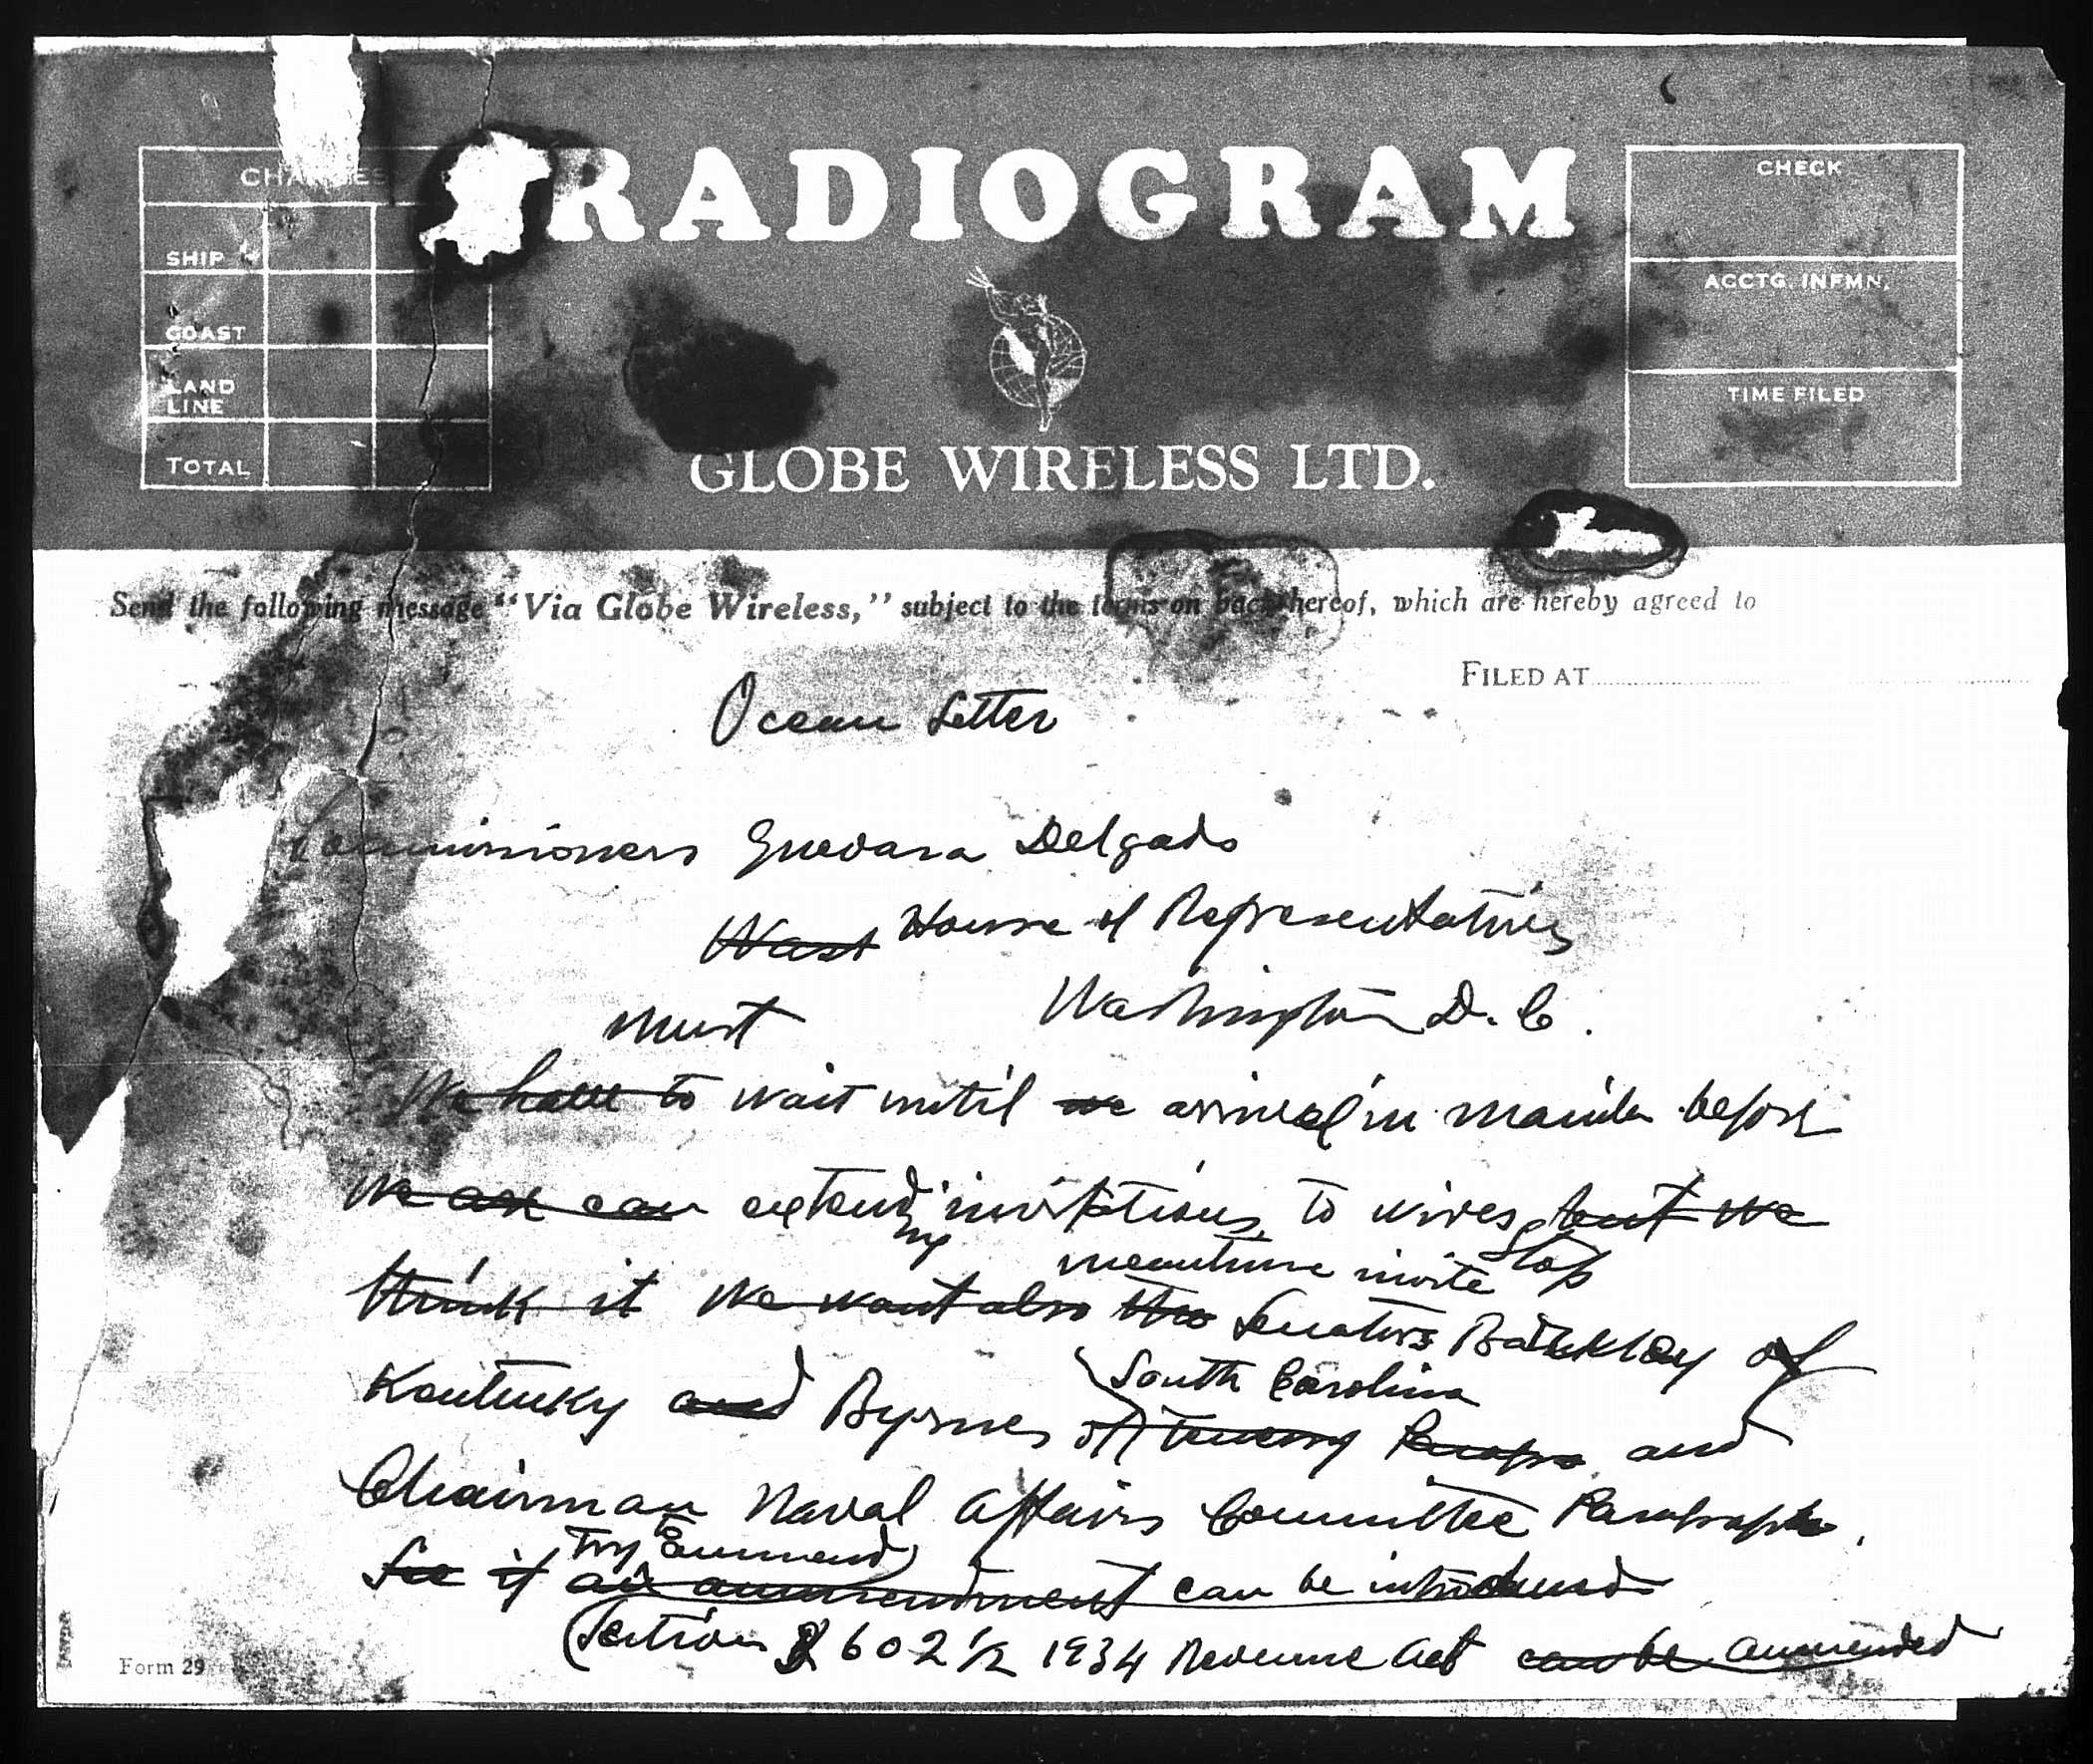 CHARGES
SHIP
COAST
LAND LINE
TOTAL
RADIOGRAM
GLOBE WIRELESS LTD.
CHECK
ACCTG. INFMN.
TIME FILED
Send the following message "Via Globe Wireless," subject to the terms on back hereof, which are hereby agreed to
FILED AT
Ocean Letter
Commissioners Guevara Delgado
Wash House of Representatives
Must Washington D. C.
We have to wait until we arrival in Manila before
we ask can extending invitations to wives but we
meantime invite Stop
think it We want also two Senators Barkley of
South Carolina
Kentucky and Byrnes of and
Chairman Naval Affairs Committee Paragraph.
Try Emmend
See if an ammendment can be introduced
Section 602 1/2 1934 Revenue Act can be ammended
Form 29